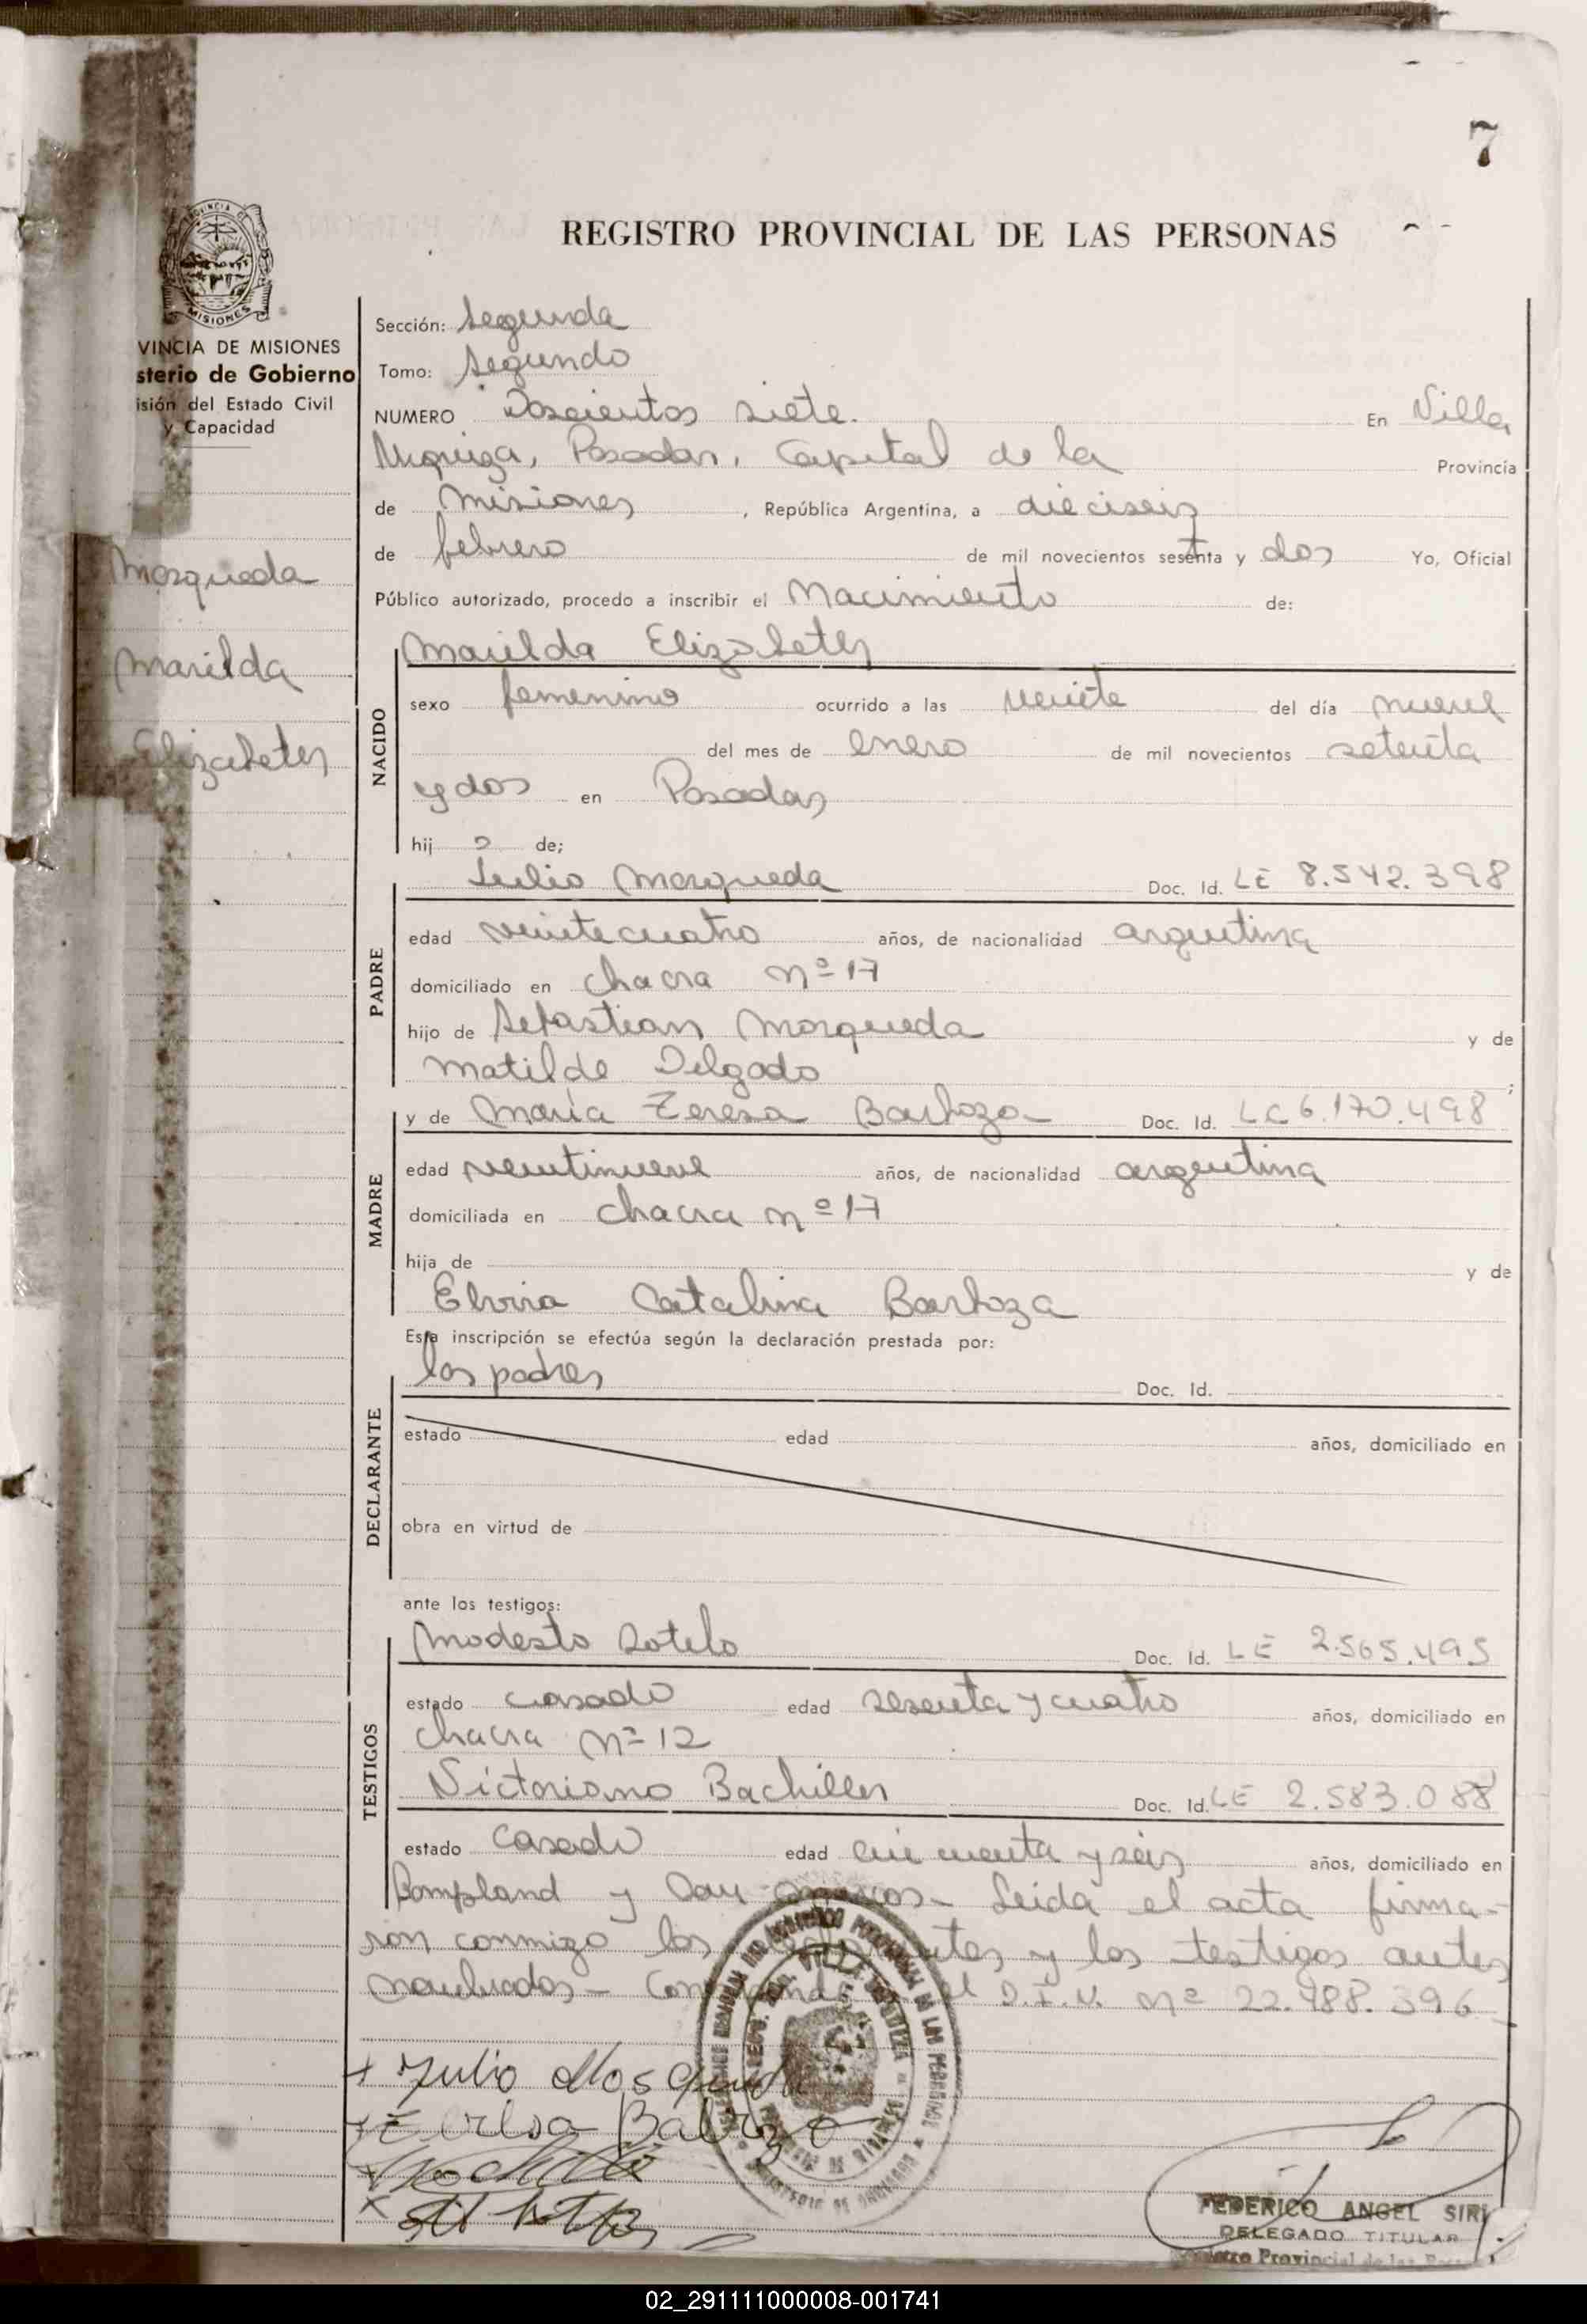 7
REGISTRO PROVINCIAL DE LAS PERSONAS
MISIONES
VINCIA DE MISIONES
sterio de Gobierno
isión del Estado Civil
y Capacidad
Mosqueda
Marilda
Elizabeth
Sección: Segunda
Tomo: Segundo
NUMERO Doscientos siete. En Villa
Urquiza, Posadas, Capital de la Provincia
de Misiones, República Argentina, a dieciseis
de febrero de mil novecientos sesenta y dos Yo, Oficial
Público autorizado, procedo a inscribir el Nacimiento de:
Marilda Elizabeth
NACIDO
sexo femenino ocurrido a las veinte del día nueve
del mes de enero de mil novecientos setenta
y dos en Posadas
hij a de;
Julio Mosqueda Doc. Id. LE 8.542.398
PADRE
edad veintecuatro años, de nacionalidad argentina
domiciliado en chacra nº 17
hijo de Sebastian Mosqueda y de
Matilde Delgado ;
y de María Teresa Barboza Doc. Id. LC 6.170.498
MADRE
edad veintinueve años, de nacionalidad argentina
domiciliada en chacra nº 17
hija de y de
Elvira Catalina Barboza
Esta inscripción se efectúa según la declaración prestada por:
los padres Doc. Id.
DECLARANTE
estado edad años, domiciliado en
obra en virtud de
ante los testigos:
Modesto Sotelo Doc. Id. LE 2.565.495
TESTIGOS
estado casado edad sesenta y cuatro años, domiciliado en
chacra nº 12
Victoriano Bachiller Doc. Id. LE 2.583.088
estado casado edad cincuenta y seis años, domiciliado en
Bompland y San Marcos - Leida el acta firma-
ron conmigo los y los testigos antes
nombrados - el D.I.U. nº 22.488.396
Julio Mosqueda
FEDERICO ANGEL SIRI
DELEGADO TITULAR
Registro Provincial de las Personas
02_291111000008-001741